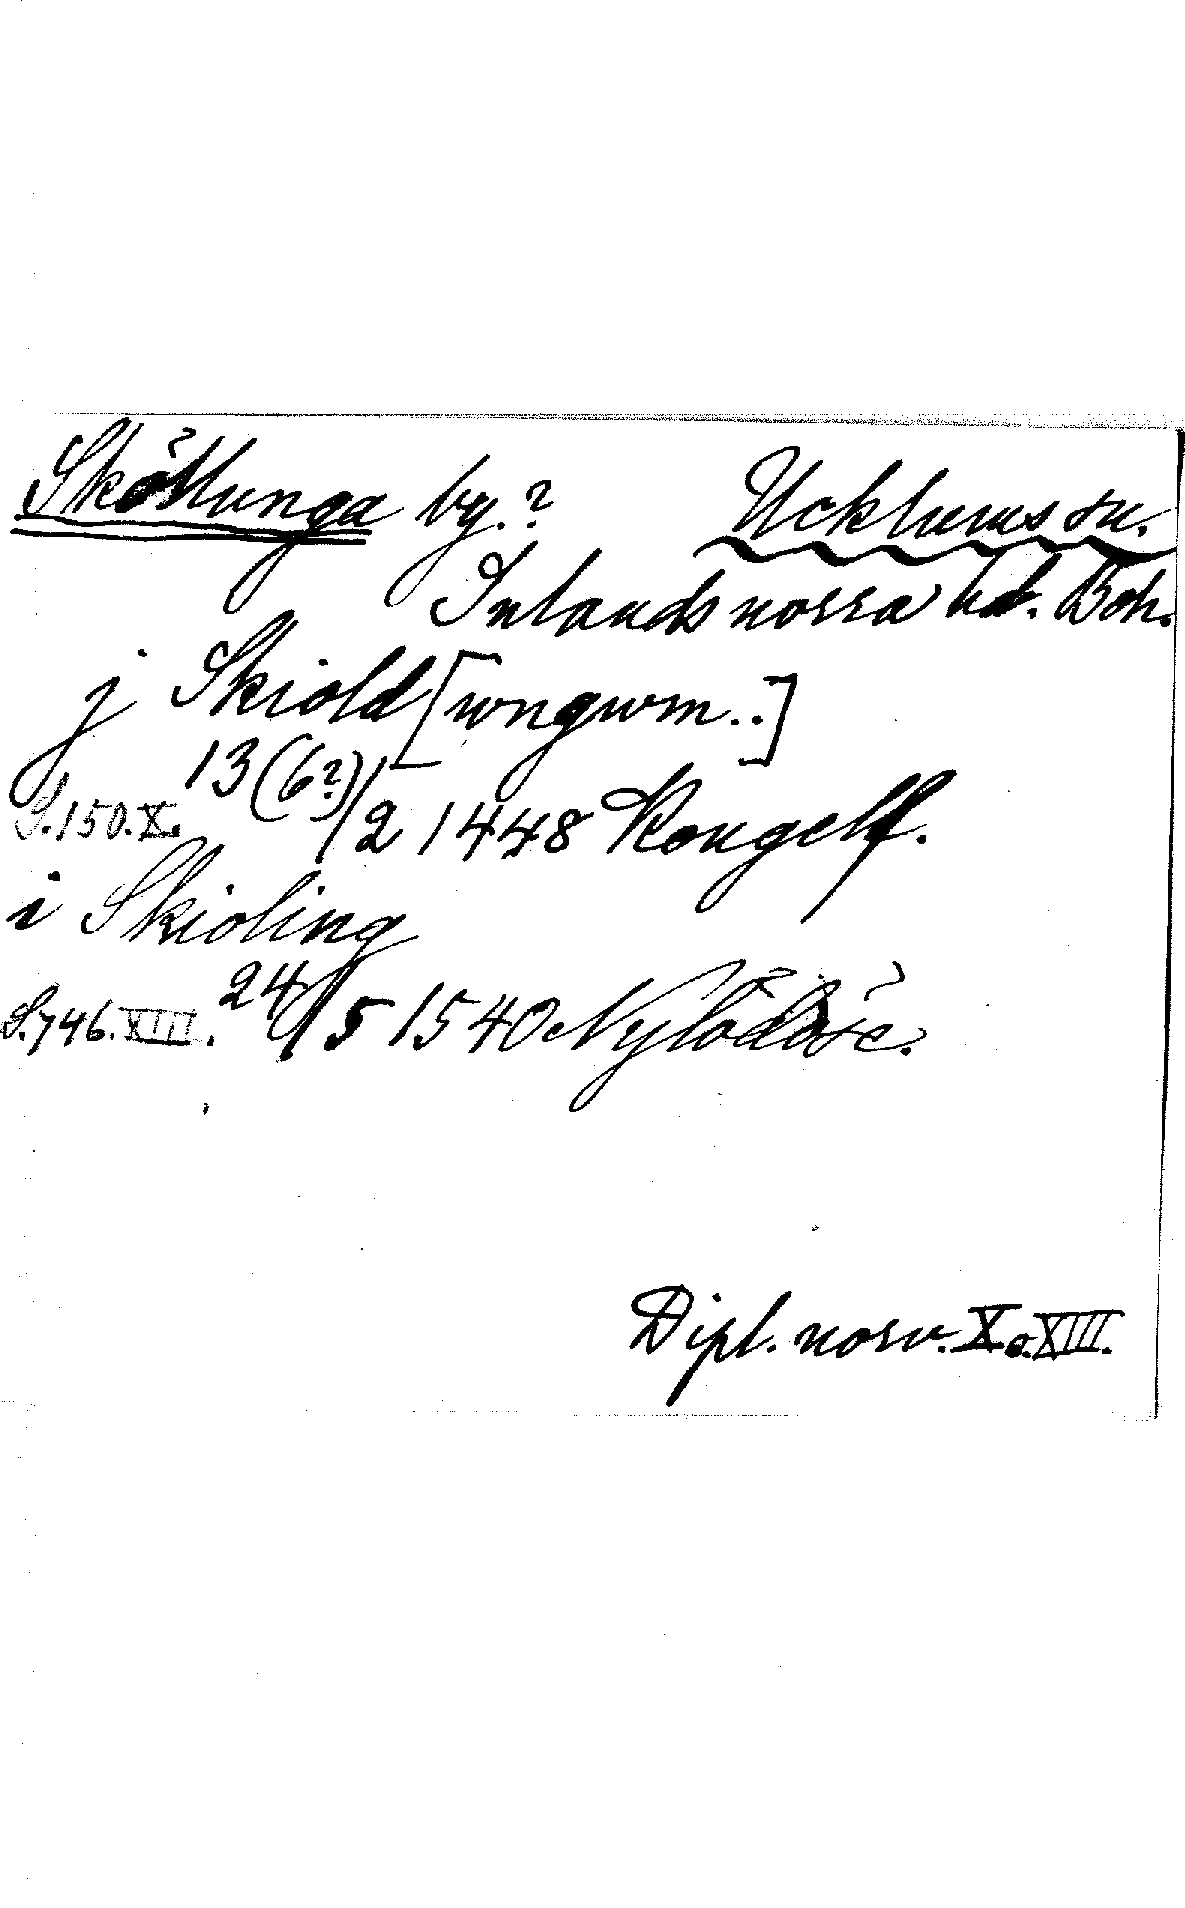 Sköllunga by.? Ucklums sn.
Inlands norra hd. Boh.
j Skiold [wngwm..]
S. 150. X. 13 (6?)/2 1448 Kongelf.
i Skioling
S. 746. XIII. 24/5 1540 Nylödöse.
Dipl. norv. X o. XIII.